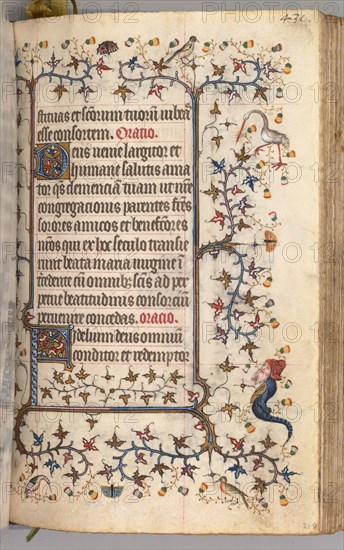 436
stituas et scorum tuorū iubeā
esse consortem. Oratio.
Deus uenie largitor et
humane salutis ama
tor qs clemenciā tuam ut nr̄e
congregacionis parentes frēs
sorores amicos et benefcōres
nr̄os qui ex hoc seculo transie
runt beata maria uirgine in
tcedente cū omnibus scis ad per
petue beatitudinis consorciū
peruenire concedas. oracio.
Fidelium deus omniū
conditor et redemptor
218